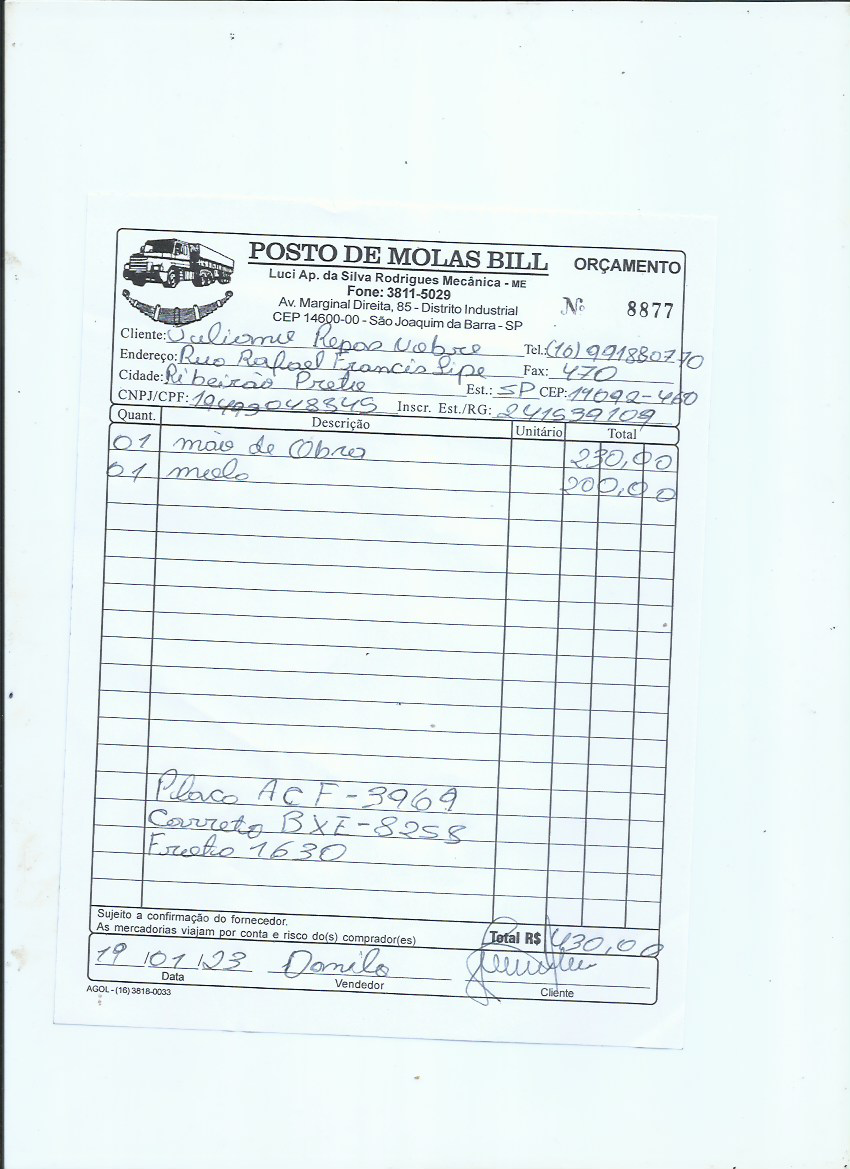 POSTO DE MOLAS BILL
ORÇAMENTO
Luci Ap. da Silva Rodrigues Mecânica - ME
Fone: 3811-5029
Av. Marginal Direita, 85 - Distrito Industrial
CEP 14600-00 - São Joaquim da Barra - SP
Nº 8877
Cliente: Repas Nobre Tel.: (16) 991880770
Endereço: Rua Rafael Francis Lipe Fax: 470
Cidade: Ribeirão Preto Est.: SP CEP: 14092-460
CNPJ/CPF: Inscr. Est./RG: 241539109
Quant. Descrição Unitário Total
01 mão de Obra 230,00
01 molo 200,00
Placa ACF-3969
Carreta BXE-8258
Frota 1630
Sujeito a confirmação do fornecedor.
As mercadorias viajam por conta e risco do(s) comprador(es)
Total R$ 430,00
19 / 01 / 23 Danilo
Data Vendedor Cliente
AGOL - (16) 3818-0033